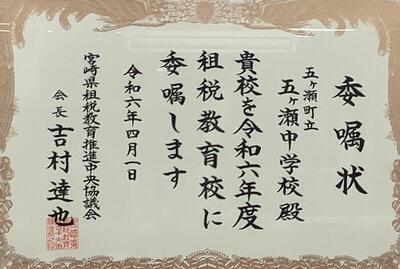 委嘱状
五ヶ瀬町立
五ヶ瀬中学校殿
貴校を令和六年度
租税教育校に
委嘱します
令和六年四月一日
宮崎県租税教育推進中央協議会
会長 吉村達也